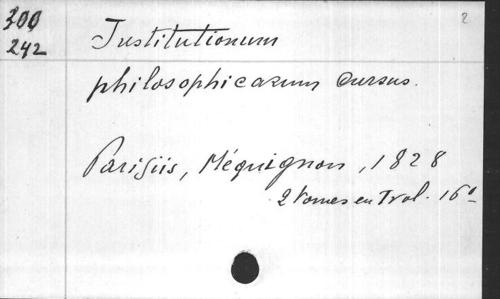 300
242
2
Institutionum
philosophicarum cursus.
Parisiis, Méquignon, 1828
2 tomes en 1 vol. 16º